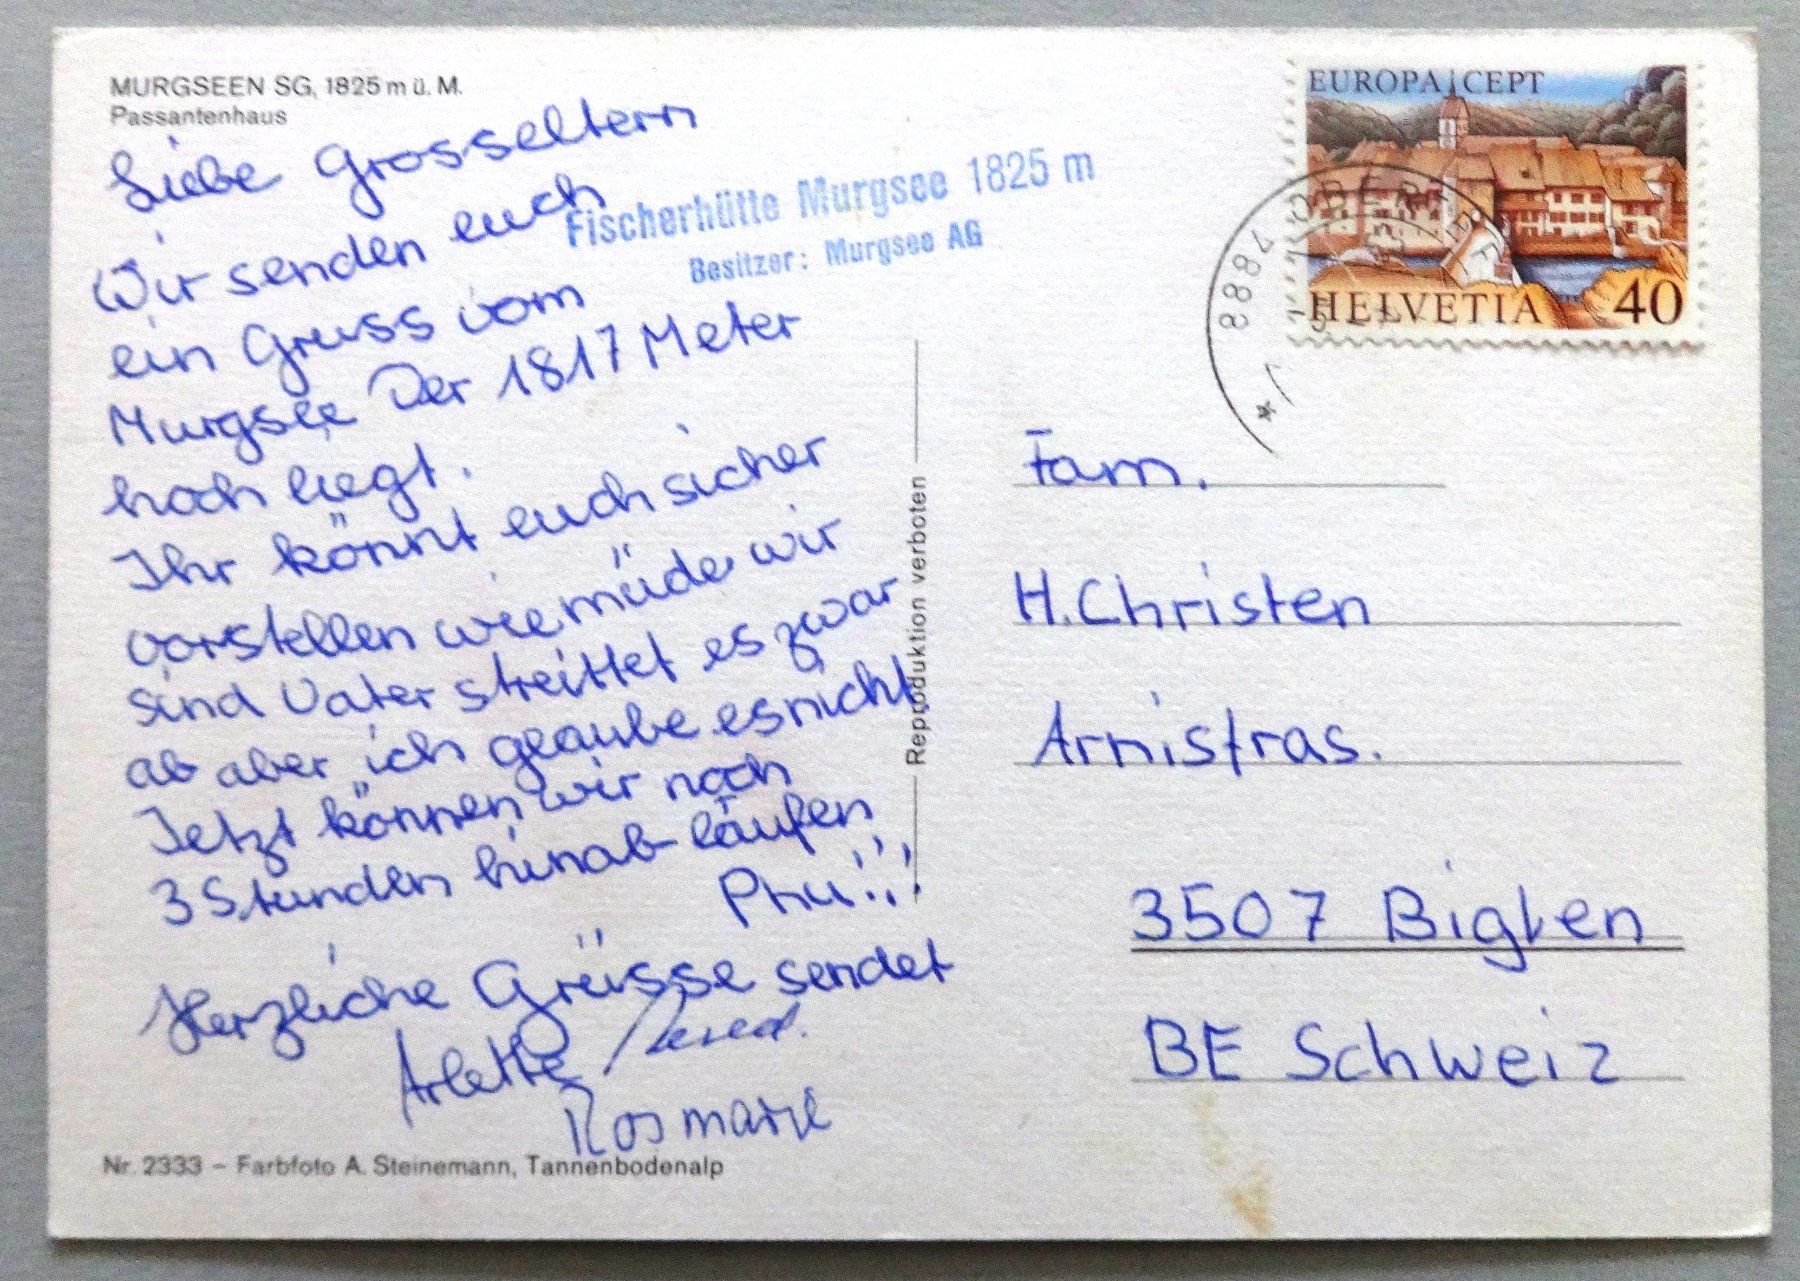 MURGSEEN SG, 1825 m ü. M.
Passantenhaus
Liebe Grosseltern
Wir senden euch
ein Gruss vom
Murgsee Der 1817 Meter
hoch liegt.
Ihr könnt euch sicher
vorstellen wie müde wir
sind Vater streittet es zwar
ab aber ich glaube es nicht
Jetzt können wir noch
3 Stunden hinab läufen
Phu!!!
Herzliche Grüsse sendet
Arlette
Rosmarie
Nr. 2333 – Farbfoto A. Steinemann, Tannenbodenalp
Fischerhütte Murgsee 1825 m
Besitzer: Murgsee AG
Reproduktion verboten
EUROPA CEPT
HELVETIA 40
8884
Fam.
H. Christen
Arnistras.
3507 Biglen
BE Schweiz